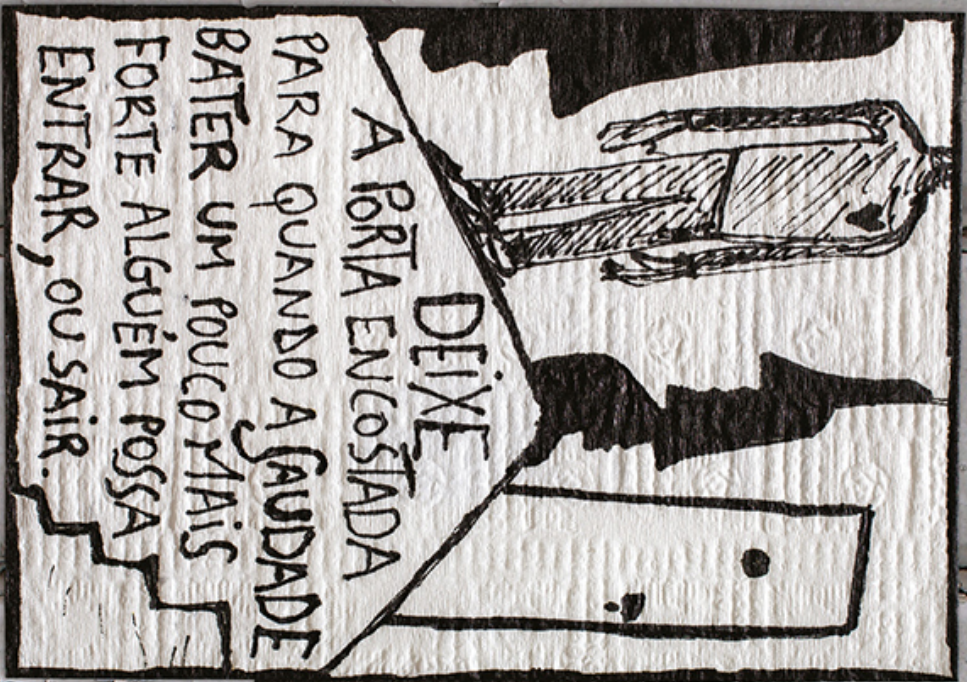 DEIXE
A PORTA ENCOSTADA
PARA QUANDO A SAUDADE
BATER UM POUCO MAIS
FORTE ALGUÉM POSSA
ENTRAR, OU SAIR.